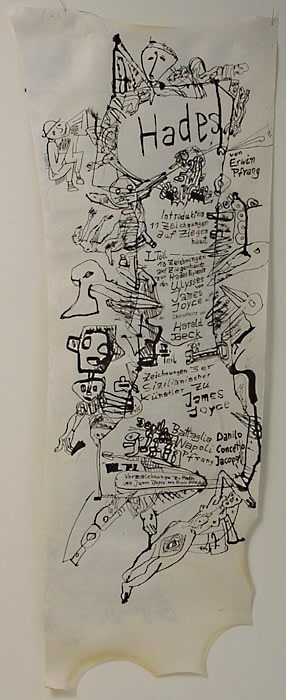 Hades
von
Erwin
Pfrang
Introduktion
11 Zeichnungen
auf Ziegen
haut
I Teil
18 Zeichnungen
auf Ziegenhaut
zur Hades Episode
des
Ulysses
von
James
Joyce
Harald
Beck
Teil
Zeichnungen 3er
Sizilianischer
Künstler zu
James
Joyce
Battaglia Danilo
Napoli Concetto
Pfrang Jacopo